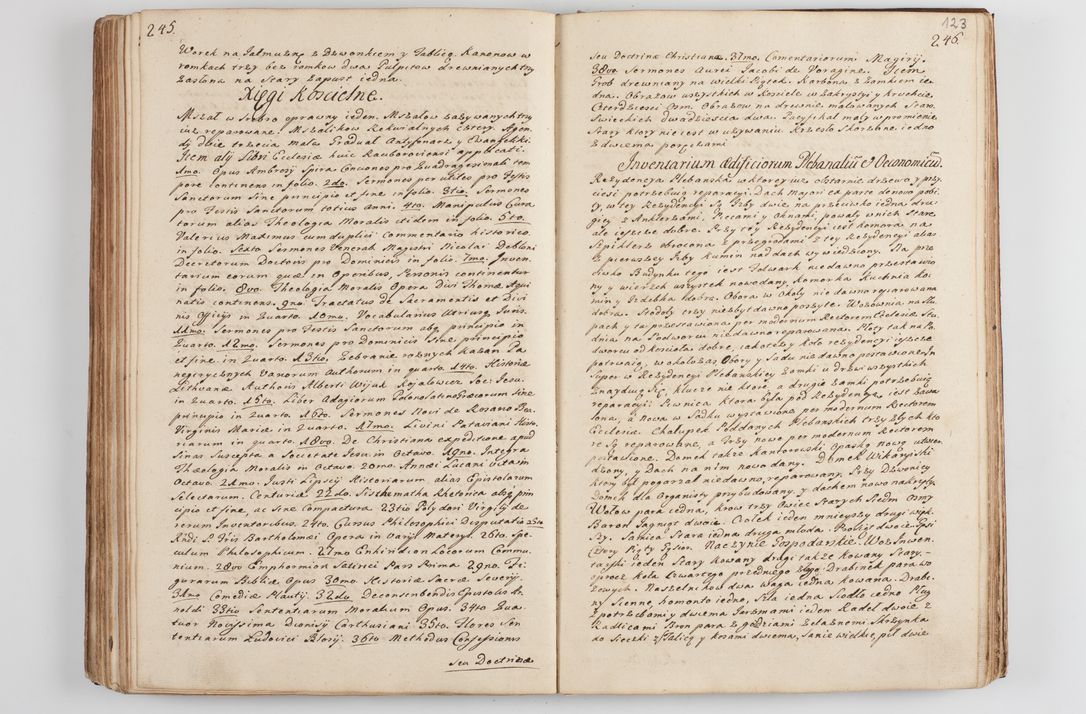 245.
Worek na Jałmużnę z Dzwonkiem y Tablicą. Kanonow w
romkach trzy bez romkow dwa Pulpitow drewnianych trzy
zasłona na Stary Zapust iedna.
Xięgi Koscielne.
Mszał w Srebro oprawny ieden. Mszałow zazywanych trzy
iuz reparowane. Mszalikow Rekwialnych cztery. Agen
dy dwie trzecia mała Graduał Antyfonarz y Ewangeliki.
Item alij Libri Ecclesiæ huic Rauborovicensi applicati.
1mo. Opus Ambrosij Spira Conciones pro Quadragesimali tem
pore continens in folio. 2do. Sermones per utiles pro Festis
Sanctorum Sine principio et fine in folio. 3tio. Sermones
pro Festis Sanctorum totius anni. 4to. Manipulus Cura
torum alias Theologia Moralis itidem in folio. 5to.
Valerius Maximus cum duplici Commentario historico
in folio. Sexto Sermones Venerab Magistri Nicolai de Bloni
Decretorum Doctoris pro Dominicis in folio. 7mo. Inven
tarium eorum quæ in Operibus, Personis continentur
in folio. 8vo. Theologia Moralis Opera Divi Thomæ Aqui
natis continens. 9no. Tractatus de Sacramentis et Divi
nis Officijs in Quarto. 10mo. Vocabularius Utriusq Juris.
11mo. Sermones pro Festis Sanctorum absq principio in
Quarto. 12mo. Sermones pro Dominicis Sine principio
et fine, in Quarto. 13tio. Zebranie roznych kazan Pa
negirycznych Variorum Authorum in quarto. 14to. Historiæ
Lithuanæ Authoris Alberti Wijuk Kojalowicz Soc: Jesu.
in Quarto. 15to. Liber Adagiorum Polono Latino Græcorum Sine
principio in Quarto. 16to. Sermones Novi de Rosario Bea.
Virginis Mariæ in Quarto. 17mo. Livini Pataviani Histo.
riarum in quarto. 18vo. De Christiana expeditione apud
Sinas Suscepta a Societate Jesu. in Octavo. 19no. Integra
Theologia Moralis in Octavo. 20mo. Annæi Lucani Vita in
Octavo. 21mo. Justi Lipsij Historiarum, alias Epistolarum
Selectarum. Centuria. 22do. Sisthematha Rhetorica absq prin
cipio et fine, ac Sine Compactura. 23tio Polydori Virgilij de
rerum Inventoribus. 24to. Cursus Philosophici Disputatio 25to
Ridi S. Iris Bartholomei Opera in Varijs Materijs. 26to. Spe,
culum Philosophicum. 27mo Enhiridion Locorum Commu
nium. 28vo Emphormion Satirici Pars Prima 29no. Fi
gurarum Bibliæ Opus 30mo. Historiæ Sacræ Severij.
31mo Comediæ Plautij. 32do. Deconscribendis Epistolis Ar
noldi 33tio Sententiarum Moralium Opus. 34to Qua
tuor Novissima Dionisij Carthusiani. 35to. Flores Sen
tentiarum Ludovici Blosij. 36to Methodus Confessionis
Seu Doctrinæ
123
246.
Seu Doctrinæ Christianæ. 37mo. Comentariorum Magirij.
38vo. Sermones Aurei Jacobi de Voragine. Item
Grob drewniany na Wielki Piątek. Karbona z Zamkiem ie
dna. Obrazow wszystkich w Kosciele w Zakrystyi y kruchcie.
Czterdziesci Osm. Obrazow na drewnie malowanych Star.
Swieckich dwadziescia dwa. Pacyfikał mały w promienie
Stary ktory nie iest w uzywaniu. Krzesło Skorzane iedno
z dwiema poręczami.
Inventarium Ædificiorum Plebanaliu et Oeconomicu.
Rezydencya Plebanska w ktorey iuz obstarnie drzewo y przy,
ciesi potrzebuią reparacyi. Dach Majori ex parte denovo pobi,
ty, w tey Rezydencyi Są Izby dwie na przeciwko iedna dru
giey z Ankierzami. Piecami y Oknami, powały w nich Stare
ale ieszcze dobre. Przy tey Rezydencyi iest komora na
Szpiklerz obrocona z przegrodami z tey Rezydencyi abo
z pierwszey Izby kumin nad dach wywiedziony. Na prze
ciwko Budynku tego iest Folwark niedawno przestawio
ny y wierzch wszystek nowo dany, komorka kuchnia ko,
min y Izdebka dobra. Obora w Okoły niedawno reparowana
dobra. Stodoły trzy niezbyt dawno poszyte. Wozownia na Słu
pach y ta przestawiona per modernum Rectorem Ecclesiæ Stu
dnia na Podworcu niezdawno reparowana. Płoty tak na Po,
dworcu od kosciola dobre, iako tez y koło rezydencyi ieszcze
potrwaią, wokoło zas Obory y Sadu niedawno postawione. In
Super w Rezydencyi Plebanskiey Zamki u drzwi wszystkich
znayduią Się, klucze nie ktore, a drugie Zamki potrzebuią
reparacyi Piwnica ktora była pod Rezydencyą iest zawa
lona, a nowa w Sadku wystawiona per modernum Rectorem
Ecclesiæ. Chałupek Poddanych Plebanskich trzy złych kto
re Są reparowane, a Trzy nowe per modernum Rectorem
postawione. Domek takze Kantorowski Opasko nowo utwier
dzony, y Dach na nim nowo dany. Domek Wikaryiski
ktory był pogorzał niedawno, reparowany. Przy Dzwonicy
Domek dla Organisty przybudowany, y dachem nowo nakryty.
Wołow para iedna, krow trzy Owiec Starych Siedm Osmy
Baran Jagniąt dwoie. Ciołek ieden mnieyszy drugi więk,
szy. Samica Stara iedna druga młoda. Prosiąt dwoie Gęsi
Cztery Piąty Gąsior. Naczynie Gospodarskie. Woz Inwen
tarski ieden Stary kowany drugi takze kowany Stary,
oprocz koła czwartego przedniego złego. Drabinek para wo
zowych. Naszelnikow dwa. Waga iedna kowana. Drabe.
ny Sienne, bomonto iedno, Siła iedna Siodło iedno Pług
z potrzebami y dwiema Jarzmami ieden Radeł dwoie z
Radlicami Bron para z gozdziami zelaznemi Skrzynka
do Sieczki z Ładicą y kosami dwiema, Sanie wielkie, pił dwie